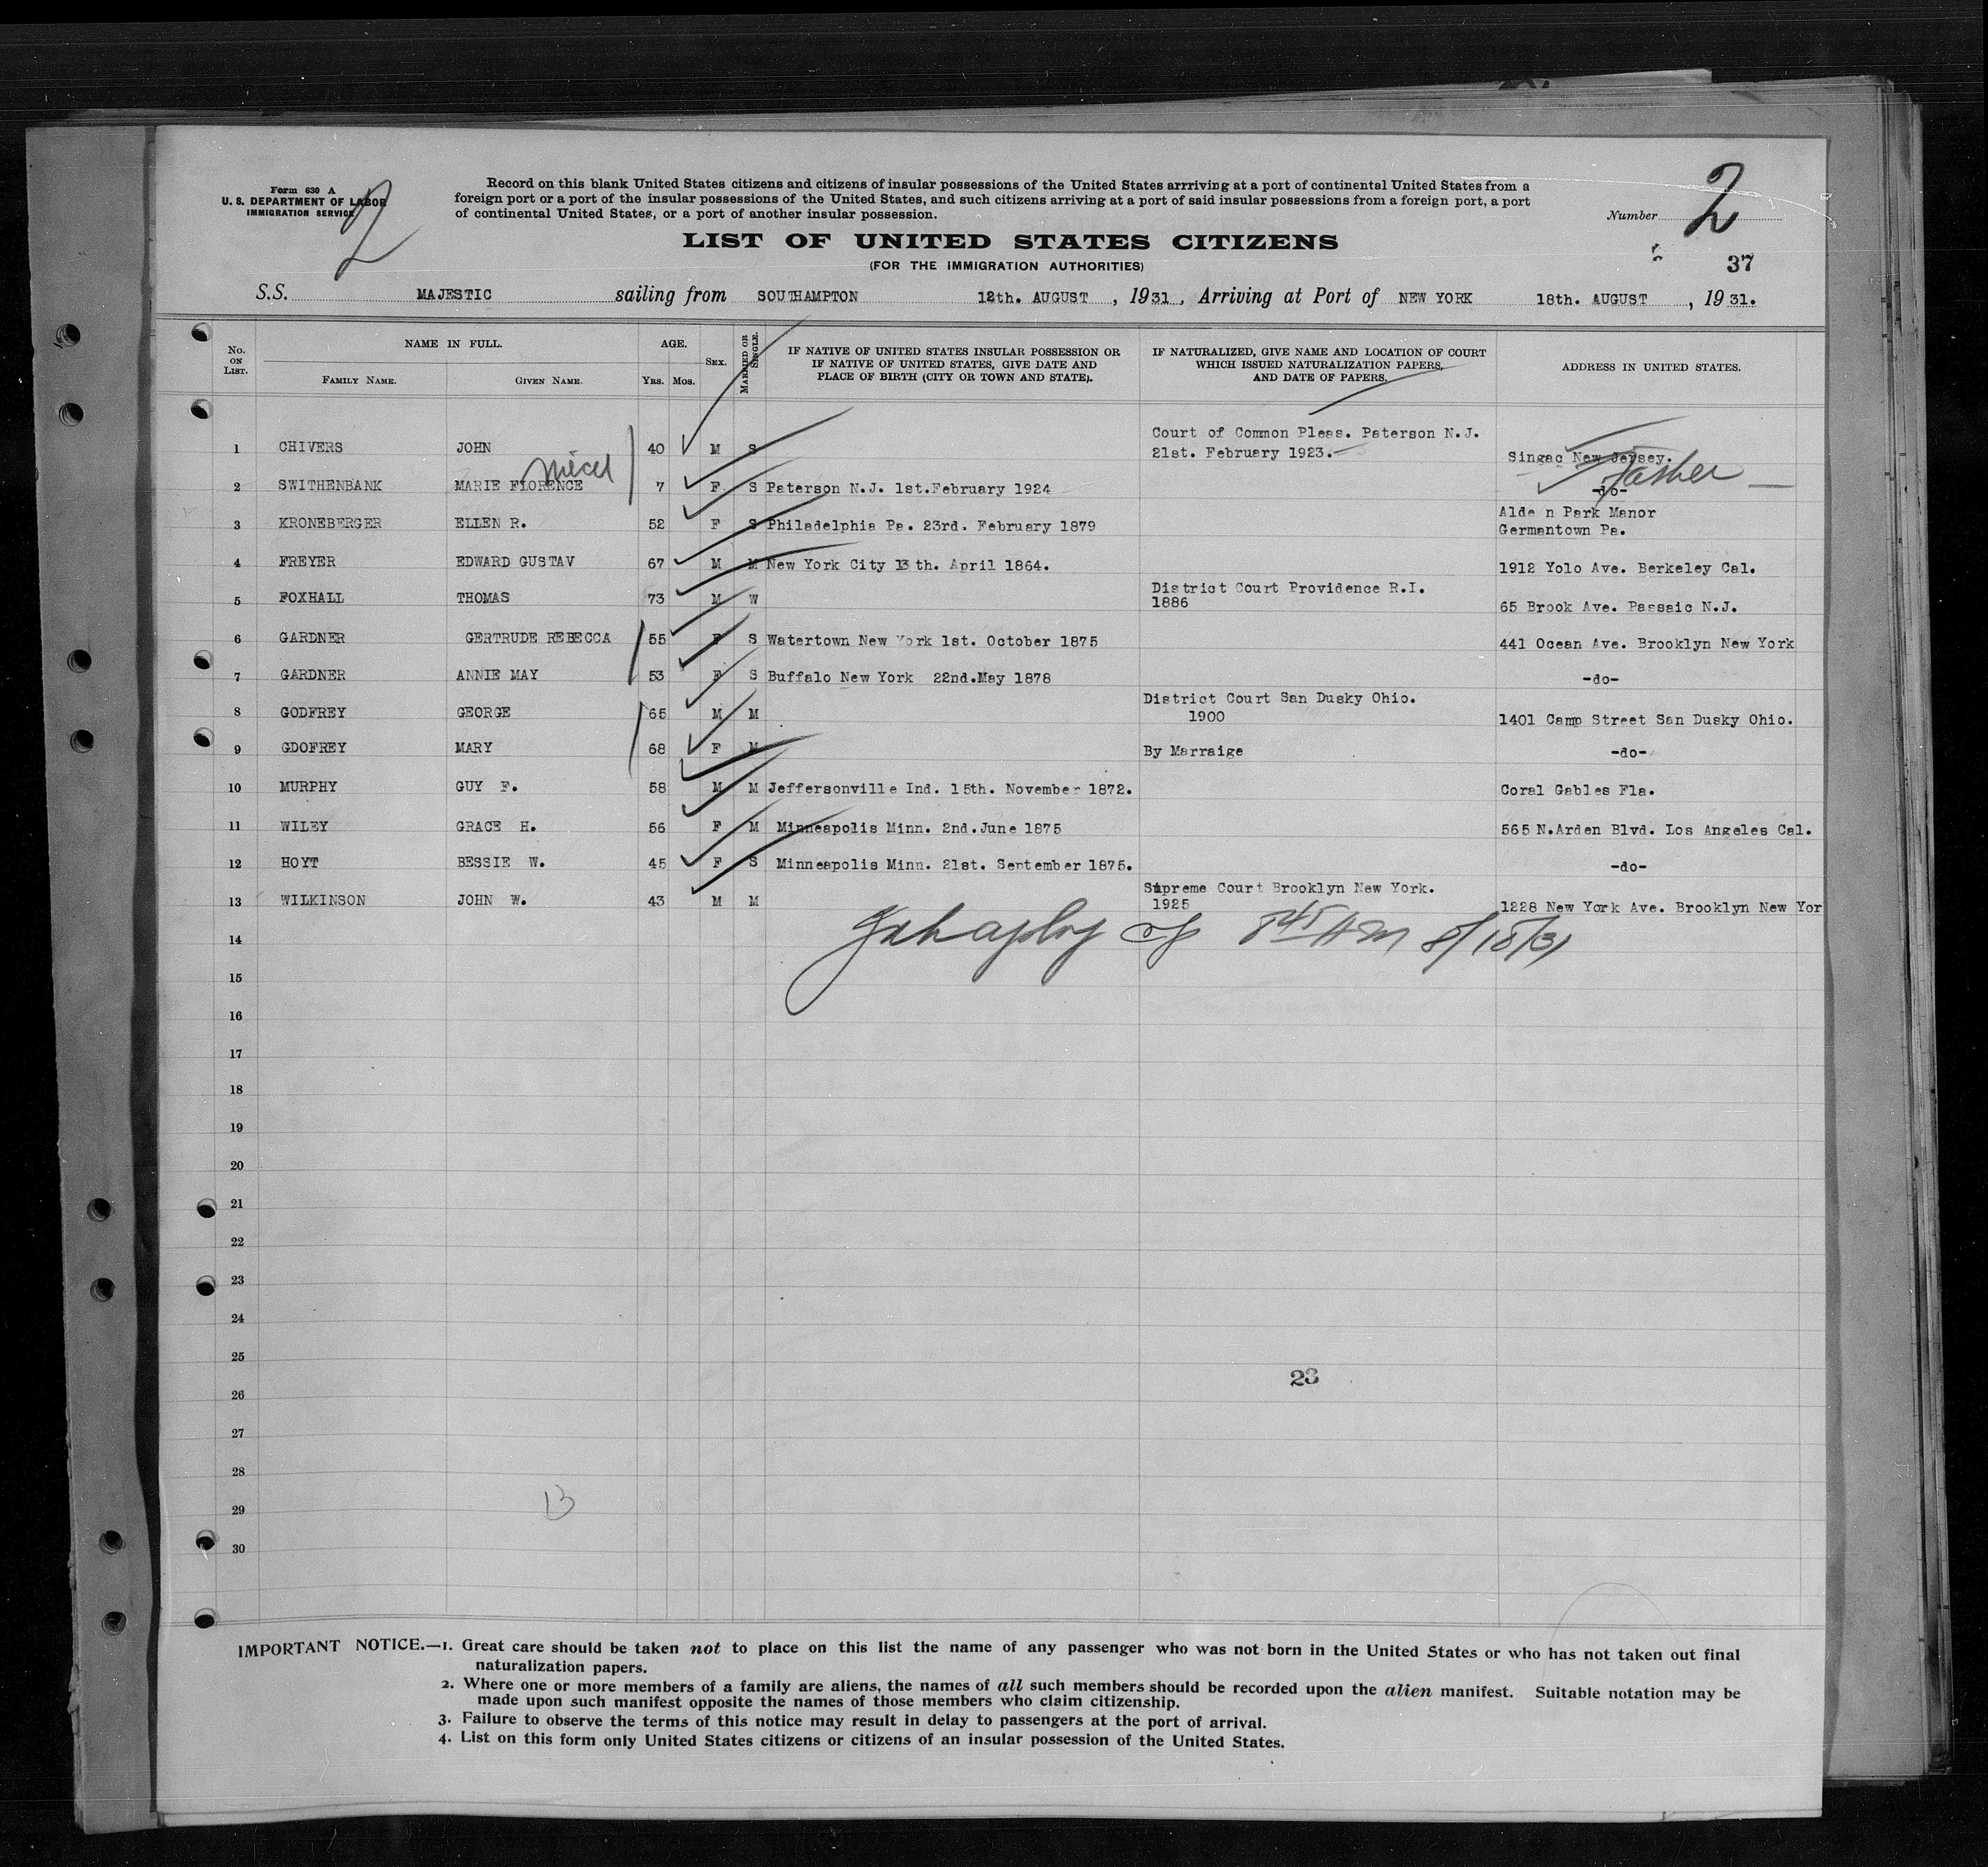 Form 630 A
U. S. DEPARTMENT OF LABOR
IMMIGRATION SERVICE
2
Record on this blank United States citizens and citizens of insular possessions of the United States arrriving at a port of continental United States from a
foreign port or a port of the insular possessions of the United States, and such citizens arriving at a port of said insular possessions from a foreign port, a port
of continental United States, or a port of another insular possession.
Number 2
LIST OF UNITED STATES CITIZENS
(FOR THE IMMIGRATION AUTHORITIES)
37
S.S. MAJESTIC sailing from SOUTHAMPTON 12th. AUGUST, 1931, Arriving at Port of NEW YORK 18th. AUGUST, 1931.
No. ON LIST.
NAME IN FULL.
FAMILY NAME. GIVEN NAME.
AGE.
YRS. MOS.
SEX.
MARRIED OR SINGLE.
IF NATIVE OF UNITED STATES INSULAR POSSESSION OR
IF NATIVE OF UNITED STATES, GIVE DATE AND
PLACE OF BIRTH (CITY OR TOWN AND STATE).
IF NATURALIZED, GIVE NAME AND LOCATION OF COURT
WHICH ISSUED NATURALIZATION PAPERS,
AND DATE OF PAPERS.
ADDRESS IN UNITED STATES.
Court of Common Pleas. Paterson N.J.
1 CHIVERS JOHN 40 M S 21st. February 1923. Singac New Jersey.
niece
Father
2 SWITHENBANK MARIE FLORENCE 7 F S Paterson N.J. 1st.February 1924 -do-
Alde n Park Manor
3 KRONEBERGER ELLEN R. 52 F S Philadelphia Pa. 23rd. February 1879 Germantown Pa.
4 FREYER EDWARD GUSTAV 67 M M New York City 13 th. April 1864. 1912 Yolo Ave. Berkeley Cal.
District Court Providence R.I.
5 FOXHALL THOMAS 73 M W 1886 65 Brook Ave. Passaic N.J.
6 GARDNER GERTRUDE REBECCA 55 F S Watertown New York 1st. October 1875 441 Ocean Ave. Brooklyn New York
7 GARDNER ANNIE MAY 53 F S Buffalo New York 22nd.May 1878 -do-
District Court San Dusky Ohio.
8 GODFREY GEORGE 65 M M 1900 1401 Camp Street San Dusky Ohio.
9 GDOFREY MARY 68 F M By Marraige -do-
10 MURPHY GUY F. 58 M M Jeffersonville Ind. 15th. November 1872. Coral Gables Fla.
11 WILEY GRACE H. 56 F M Minneapolis Minn. 2nd.June 1875 565 N.Arden Blvd. Los Angeles Cal.
12 HOYT BESSIE W. 45 F S Minneapolis Minn. 21st. September 1875. -do-
Supreme Court Brooklyn New York.
13 WILKINSON JOHN W. 43 M M 1925 1228 New York Ave. Brooklyn New Yor
845 AM 8/18/31
14
15
16
17
18
19
20
21
22
23
24
25
23
26
27
28
13
29
30
IMPORTANT NOTICE.—1. Great care should be taken not to place on this list the name of any passenger who was not born in the United States or who has not taken out final
naturalization papers.
2. Where one or more members of a family are aliens, the names of all such members should be recorded upon the alien manifest. Suitable notation may be
made upon such manifest opposite the names of those members who claim citizenship.
3. Failure to observe the terms of this notice may result in delay to passengers at the port of arrival.
4. List on this form only United States citizens or citizens of an insular possession of the United States.